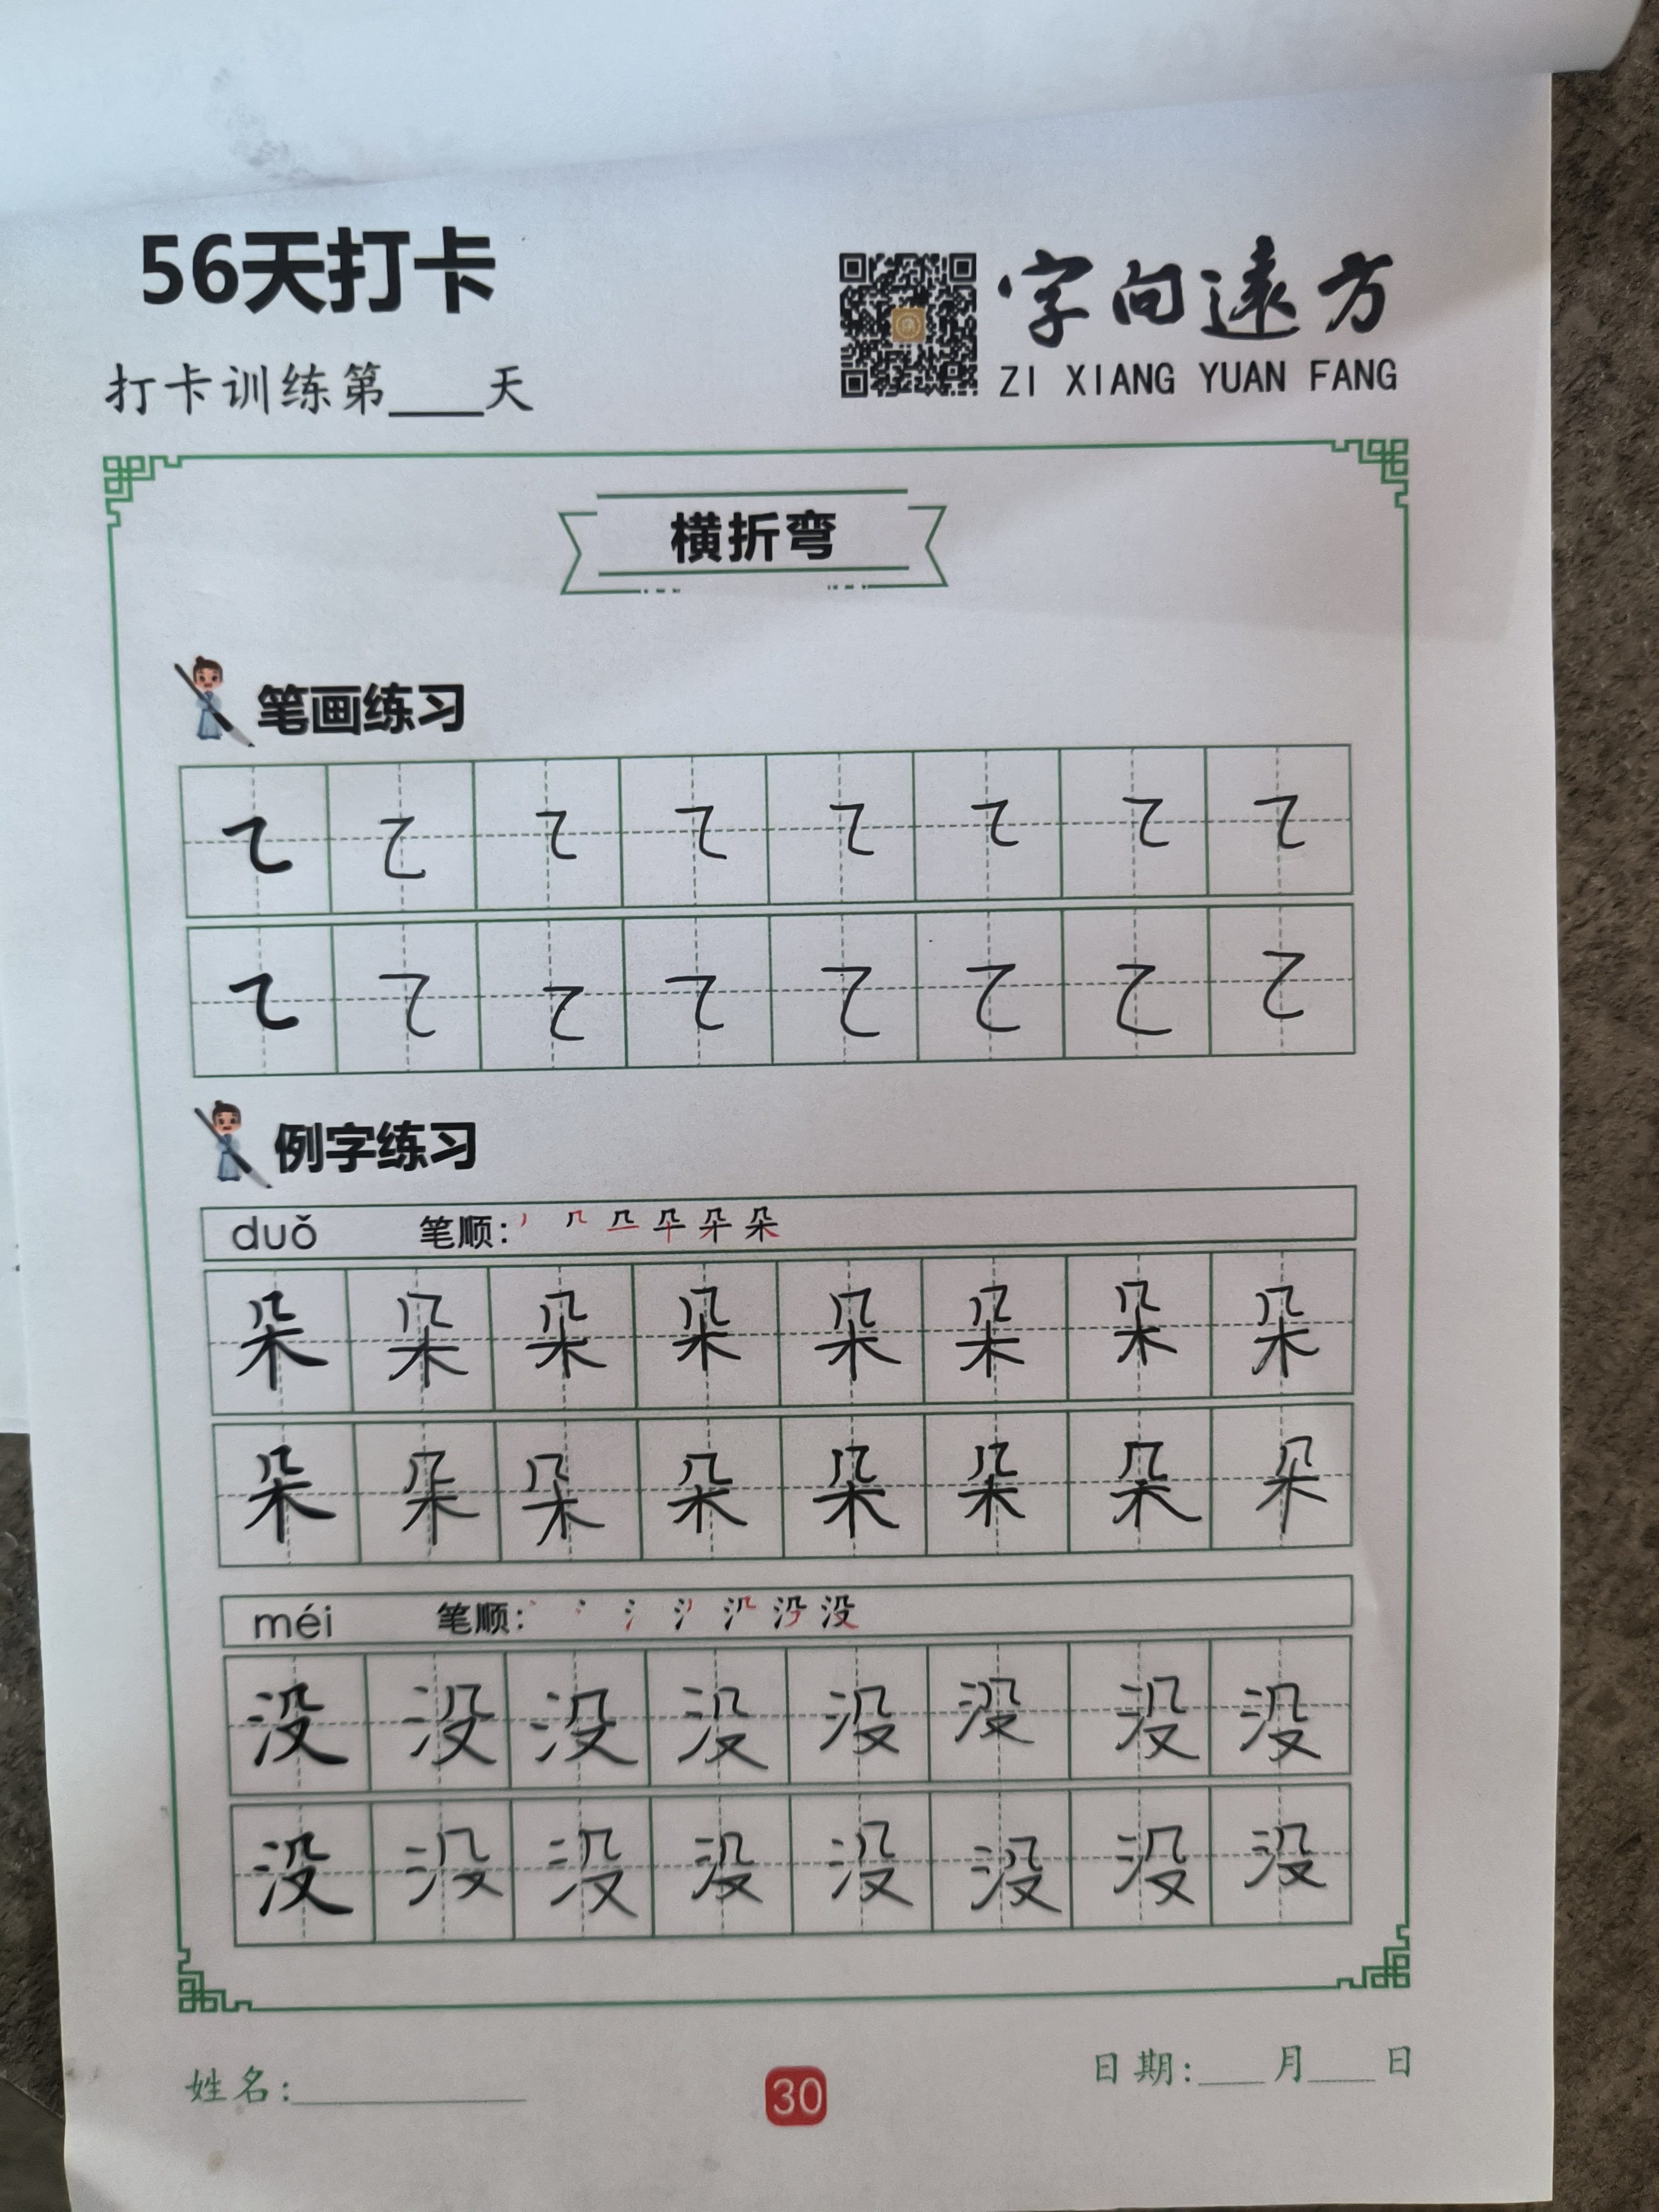 56天打卡
字向遠方
打卡训练第____天
ZI XIANG YUAN FANG
横折弯
笔画练习
㇍ ㇍ ㇍ ㇍ ㇍ ㇍ ㇍ ㇍
㇍ ㇍ ㇍ ㇍ ㇍ ㇍ ㇍ ㇍
例字练习
duǒ 笔顺: 朵
朵 朵 朵 朵 朵 朵 朵 朵
朵 朵 朵 朵 朵 朵 朵 朵
méi 笔顺: 没
没 没 没 没 没 没 没 没
没 没 没 没 没 没 没 没
姓名:__________ 日期:___月___日
30